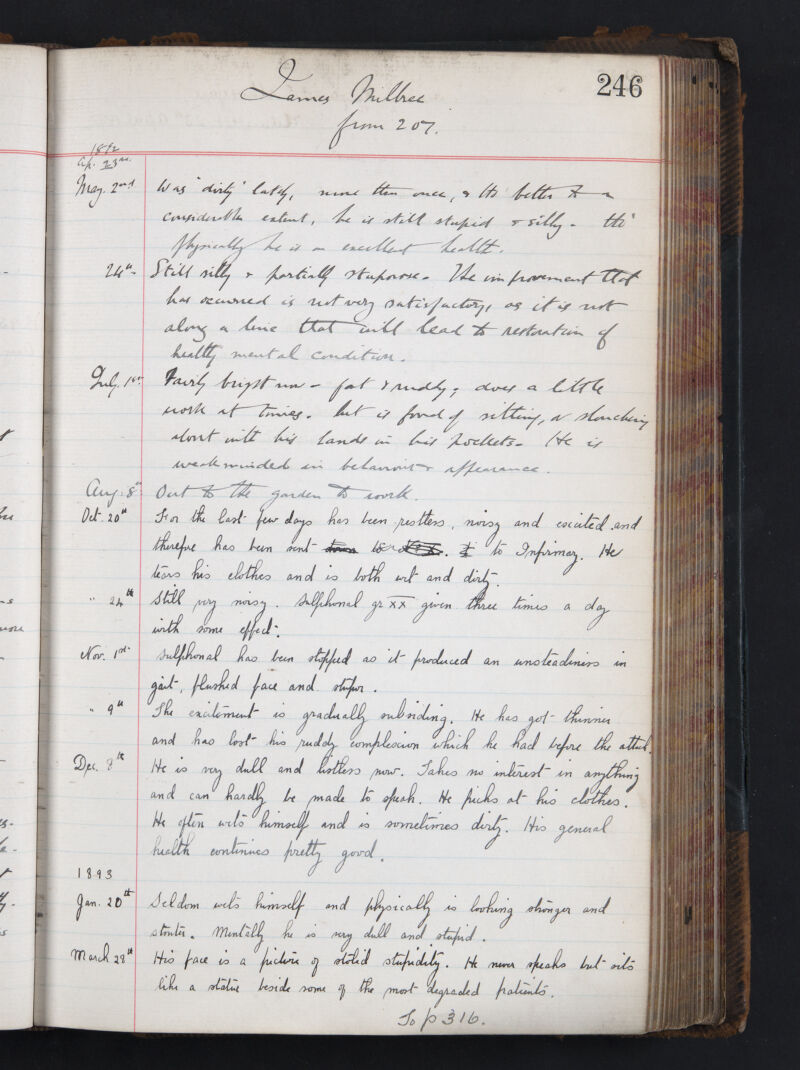 246
James Milbree
from 207.
1892
Ap. 23rd.
May. 2nd Was 'dirty' lately, more than once, & tho' better to a
considerable extent, he is still stupid & silly - tho'
physically he is in excellent health.
24th - Still silly & partially stuporose. The improvement that
has occurred is not very satisfactory, as it is not
along a line that will lead to restoration of
healthy mental condition.
July. 1st Fairly bright now - fat & ruddy, does a little
work at times. but is fond of sitting, or slouching
about with his hands in his pockets - He is
weakminded in behaviour & appearance.
Aug. 8th Out to the garden to work.
Oct. 20th For the last few days has been restless, noisy and excited and
therefore has been sent to Infirmary. He
tears his clothes and is both wet and dirty.
" 24th Still very noisy. Sulphonal gr XX given three times a day
with some effect.
Nov. 1st Sulphonal has been stopped as it produced an unsteadiness in
gait, flushed face and stupor.
" 9th The excitement is gradually subsiding. He has got thinner
and has lost his ruddy complexion which he had before the attack.
Dec. 8th He is very dull and listless now. Takes no interest in anything
and can hardly be made to speak. He picks at his clothes.
He often wets himself and is sometimes dirty. His general
health continues pretty good.
1893
Jan. 20th Seldom wets himself and physically is looking stronger and
stouter. Mentally he is very dull and stupid.
March 28th His face is a picture of stolid stupidity. He never speaks but sits
like a statue beside some of the most degraded patients.
To p 316.